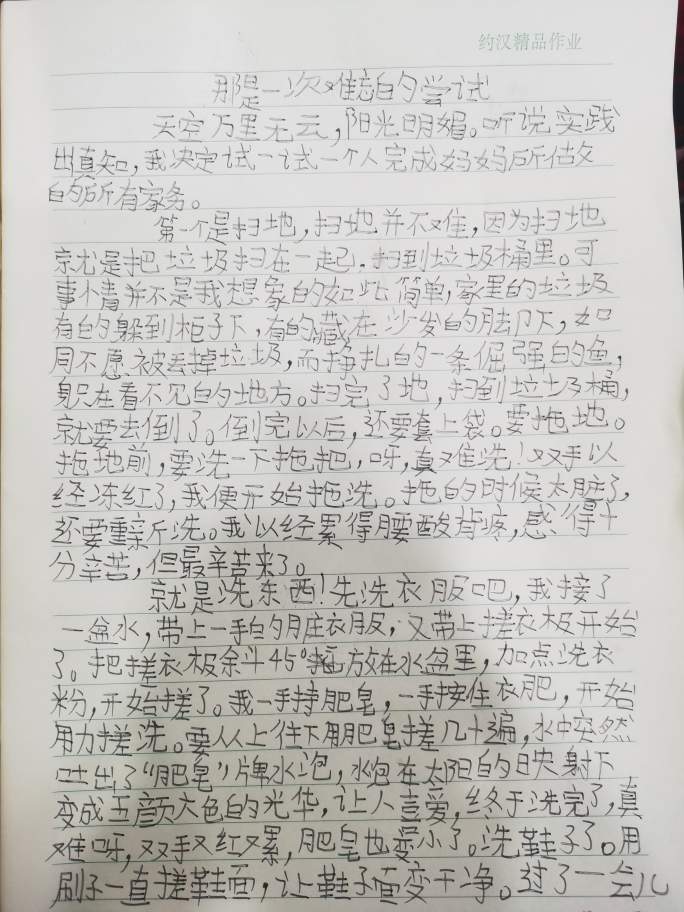 约汉精品作业
那是一次难忘的尝试
天空万里无云,阳光明媚。听说实践
出真知,我决定试一试一个人完成妈妈所做
的所有家务。
第一个是扫地,扫地并不难,因为扫地
就是把垃圾扫在一起.扫到垃圾桶里。可
事情并不是我想象的如此简单,家里的垃圾
有的躲到柜子下,有的藏在沙发的脚下,如
同不愿被丢掉垃圾,而挣扎的一条倔强的鱼,
躲在看不见的地方。扫完了地,扫到垃圾桶,
就要去倒了。倒完以后,还要套上袋。要拖地。
拖地前,要洗一下拖把,呀,真难洗!双手以
经冻红了,我便开始拖洗。拖的时候太脏了,
还要重新洗。我以经累得腰酸背疼,感得十
分辛苦,但最辛苦来了。
就是洗东西!先洗衣服吧,我接了
一盆水,带上一手的脏衣服,又带上搓衣板开始
了。把搓衣板余斗45°放在水盆里,加点洗衣
粉,开始搓了。我一手持肥皂,一手按住衣肥,开始
用力搓洗。要从上往下用肥皂搓几十遍,水中突然
吐出了“肥皂”牌水泡,水包在太阳的映射下,
变成五颜六色的光华,让人喜爱,终于洗完了,真
难呀,双手又红又累,肥皂也变小了。洗鞋子了。用
刷子一直搓鞋面,让鞋子面变干净。过了一会儿